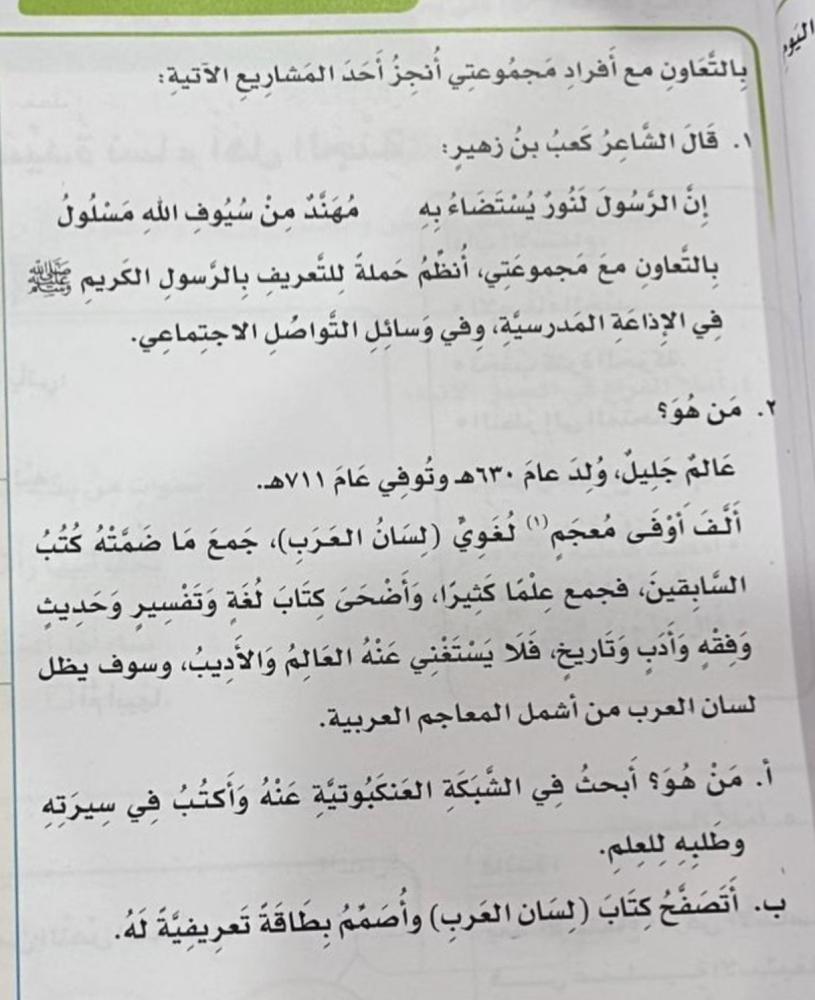 اليوم
بِالتَّعَاونِ مع أَفرادِ مَجمُوعتِي أُنجِزُ أَحَدَ المَشاريعِ الآتيةِ:
١. قَالَ الشَّاعِرُ كَعبُ بنُ زهيرٍ:
إِنَّ الرَّسُولَ لَنُورٌ يُسْتَضَاءُ بِهِ مُهَنَّدٌ مِنْ سُيُوفِ اللهِ مَسْلُولُ
بِالتَّعاونِ معَ مَجموعَتِي، أُنظِّمُ حَملةً لِلتَّعريفِ بِالرَّسولِ الكَريمِ ﷺ
فِي الإِذاعَةِ المَدرسيَّةِ، وفِي وَسائلِ التَّواصُلِ الاجتِماعِي.
٢. مَن هُوَ؟
عَالمٌ جَليلٌ، وُلِدَ عامَ ٦٣٠هـ وتُوفِي عَامَ ٧١١هـ.
أَلَّفَ أَوْفَى مُعجَمٍ(١) لُغَوِيٍّ (لِسَانُ العَرَبِ)، جَمعَ مَا ضَمَّتْهُ كُتُبُ
السَّابِقينَ، فجمع عِلْمًا كَثِيرًا، وَأَضْحَىَ كِتَابَ لُغَةٍ وَتَفْسِيرٍ وَحَدِيثٍ
وَفِقْهٍ وَأَدَبٍ وَتَاريخٍ، فَلَا يَسْتَغْنِي عَنْهُ العَالِمُ وَالأَدِيبُ، وسوف يظل
لسان العرب من أشمل المعاجم العربية.
أ. مَنْ هُوَ؟ أَبحثُ فِي الشَّبَكَةِ العَنكَبُوتيَّةِ عَنْهُ وَأَكتُبُ فِي سِيرَتِهِ
وطَلَبِهِ لِلعِلمِ.
ب. أَتَصَفَّحُ كِتَابَ (لِسَان العَربِ) وأُصَمِّمُ بِطَاقَةً تَعرِيفِيَّةً لَهُ.